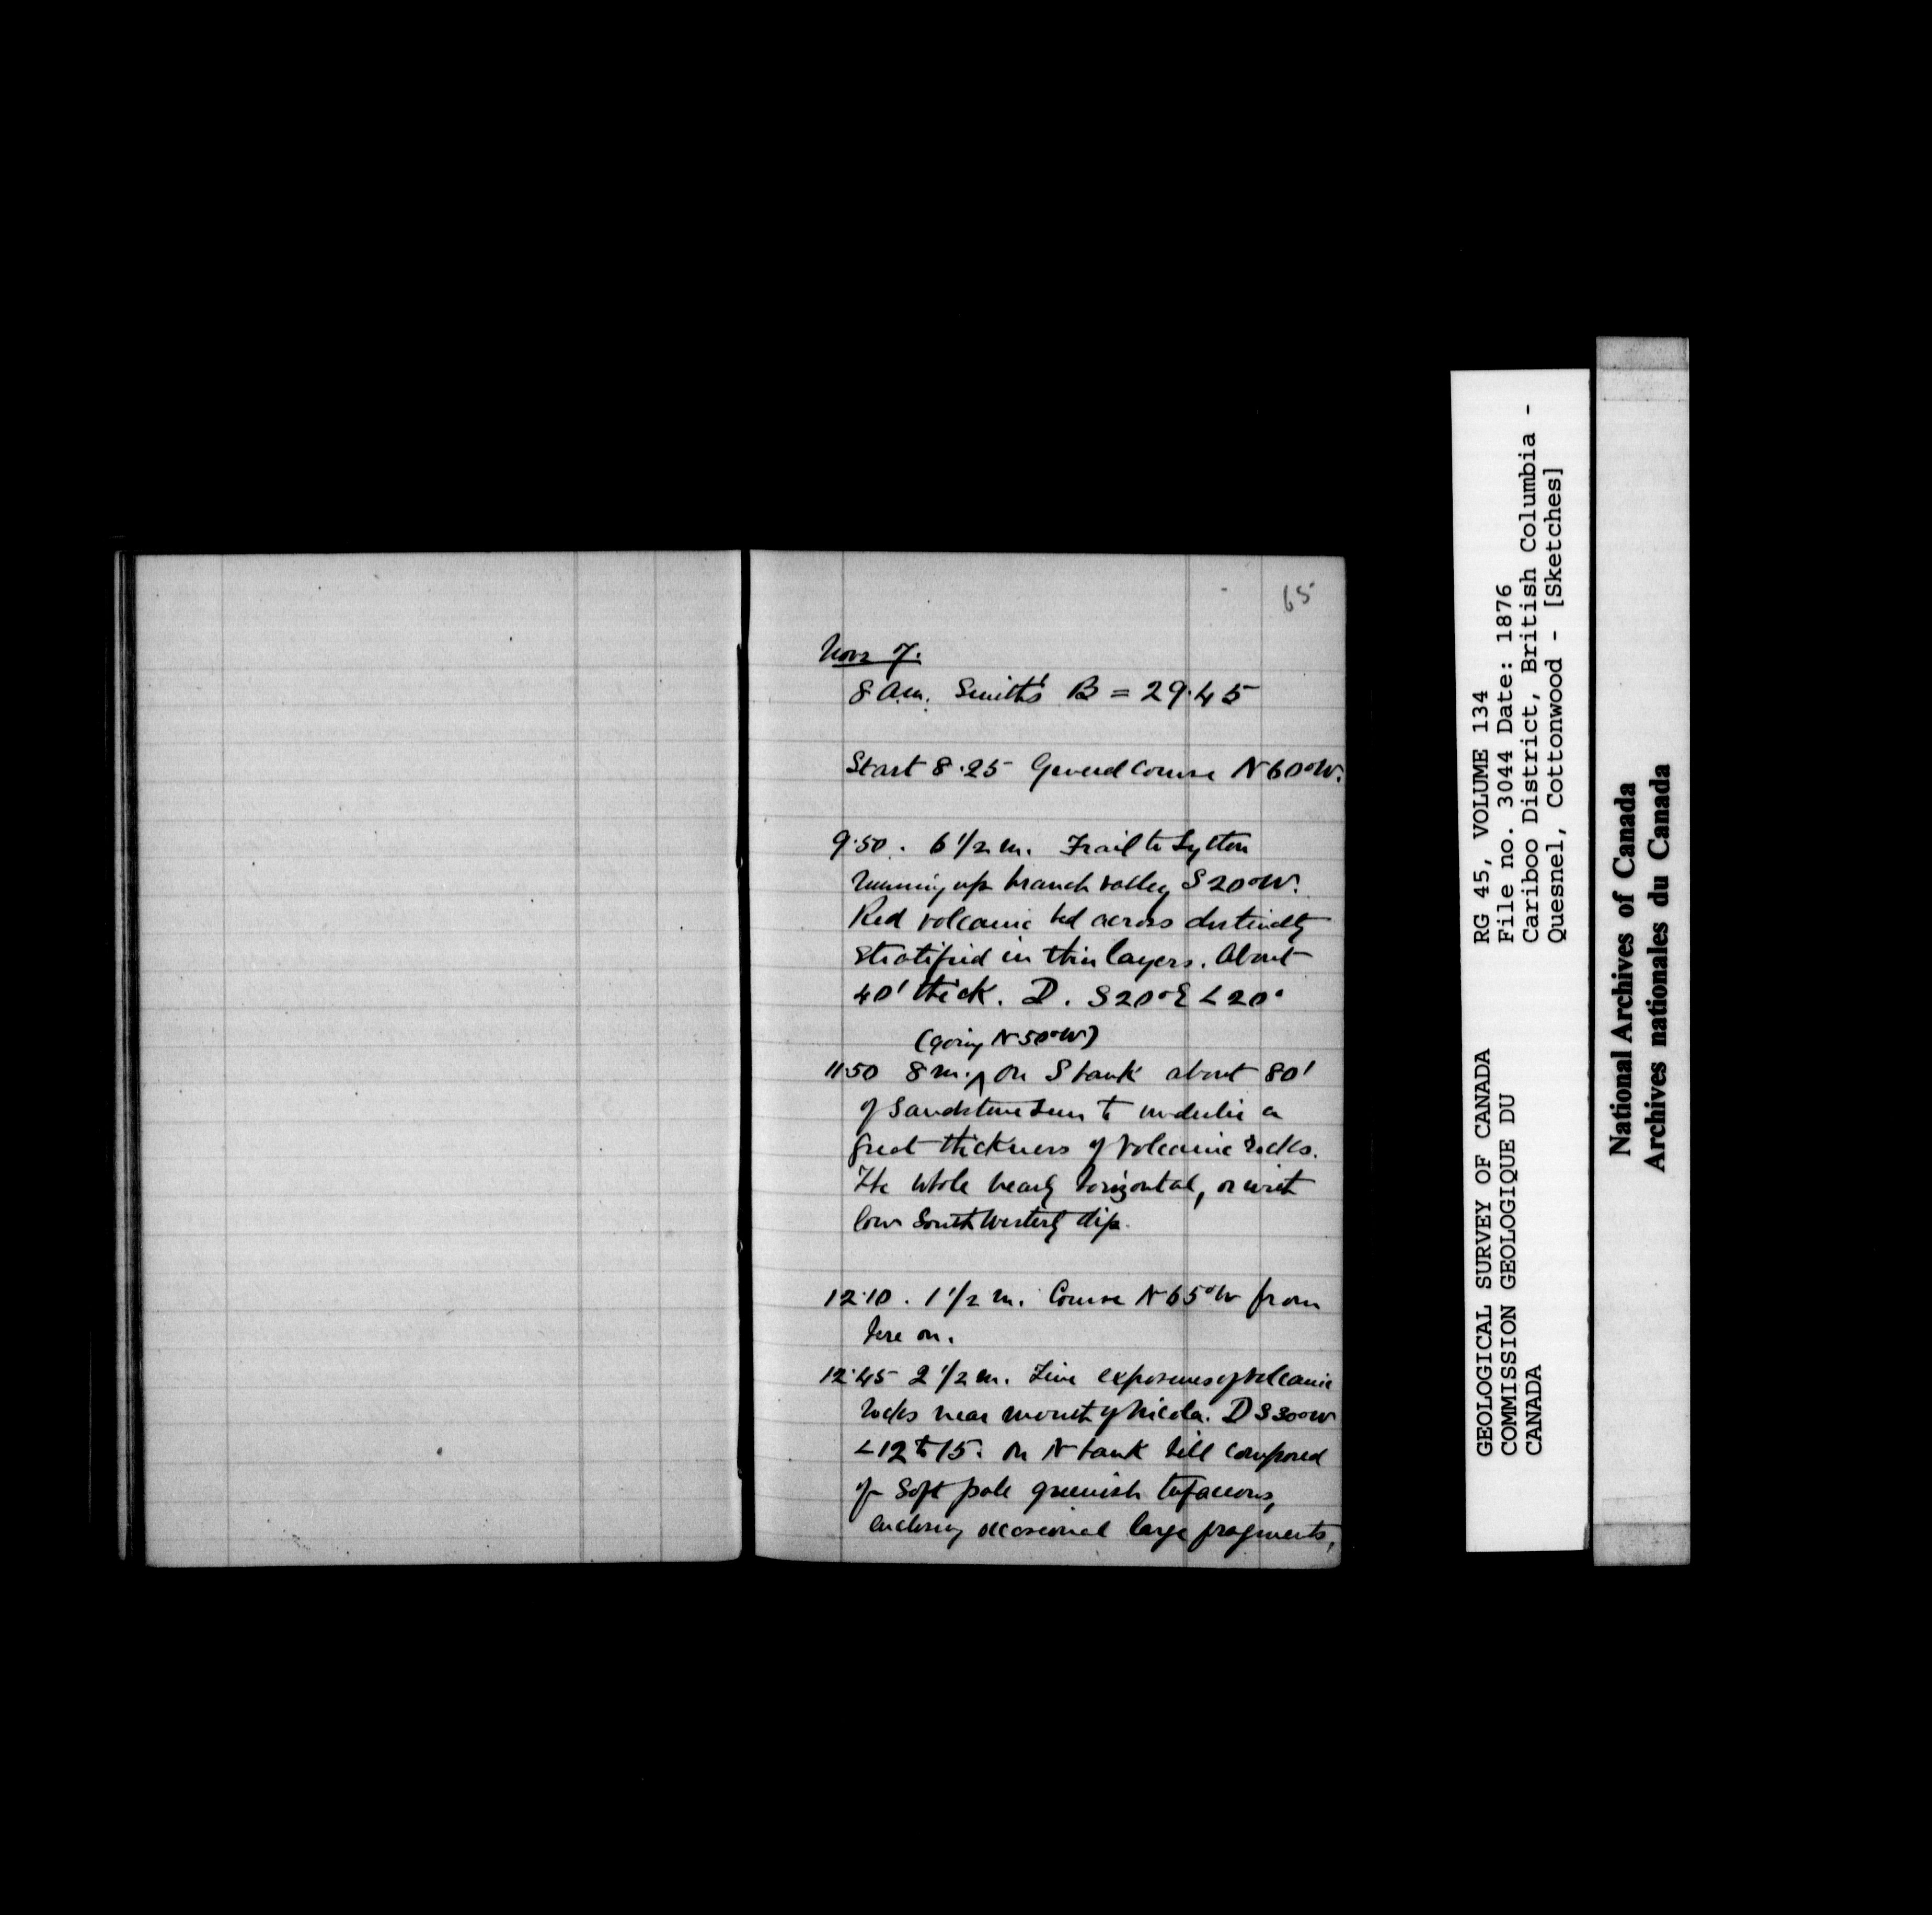 65
Nov 7.
8 a.m. Smith's B = 29.45
Start 8.25 General Course N 60° W.
9.50. 6 1/2 m. Trail to Lytton
running up branch valley S 20° W.
Red volcanic bed across distinctly
stratified in thin layers. About
40' thick. D. S 20° E < 20°
(going N 50° W)
11.50 8 m. ^ On S bank about 80'
of Sandstone seem to underlie a
great thickness of volcanic rocks.
The whole nearly horizontal, or with
low South Westerly dip.
12.10. 1 1/2 m. Course N 65° W from
here on.
12.45 2 1/2 m. Fine exposures of volcanic
rocks near mouth of Nicola. D S 30° W
< 12 to 15. On N bank hill composed
of soft pale greenish tufaceous,
enclosing occasional large fragments,
GEOLOGICAL SURVEY OF CANADA
COMMISSION GEOLOGIQUE DU
CANADA
RG 45, VOLUME 134
File no. 3044 Date: 1876
Cariboo District, British Columbia -
Quesnel, Cottonwood - [Sketches]
National Archives of Canada
Archives nationales du Canada